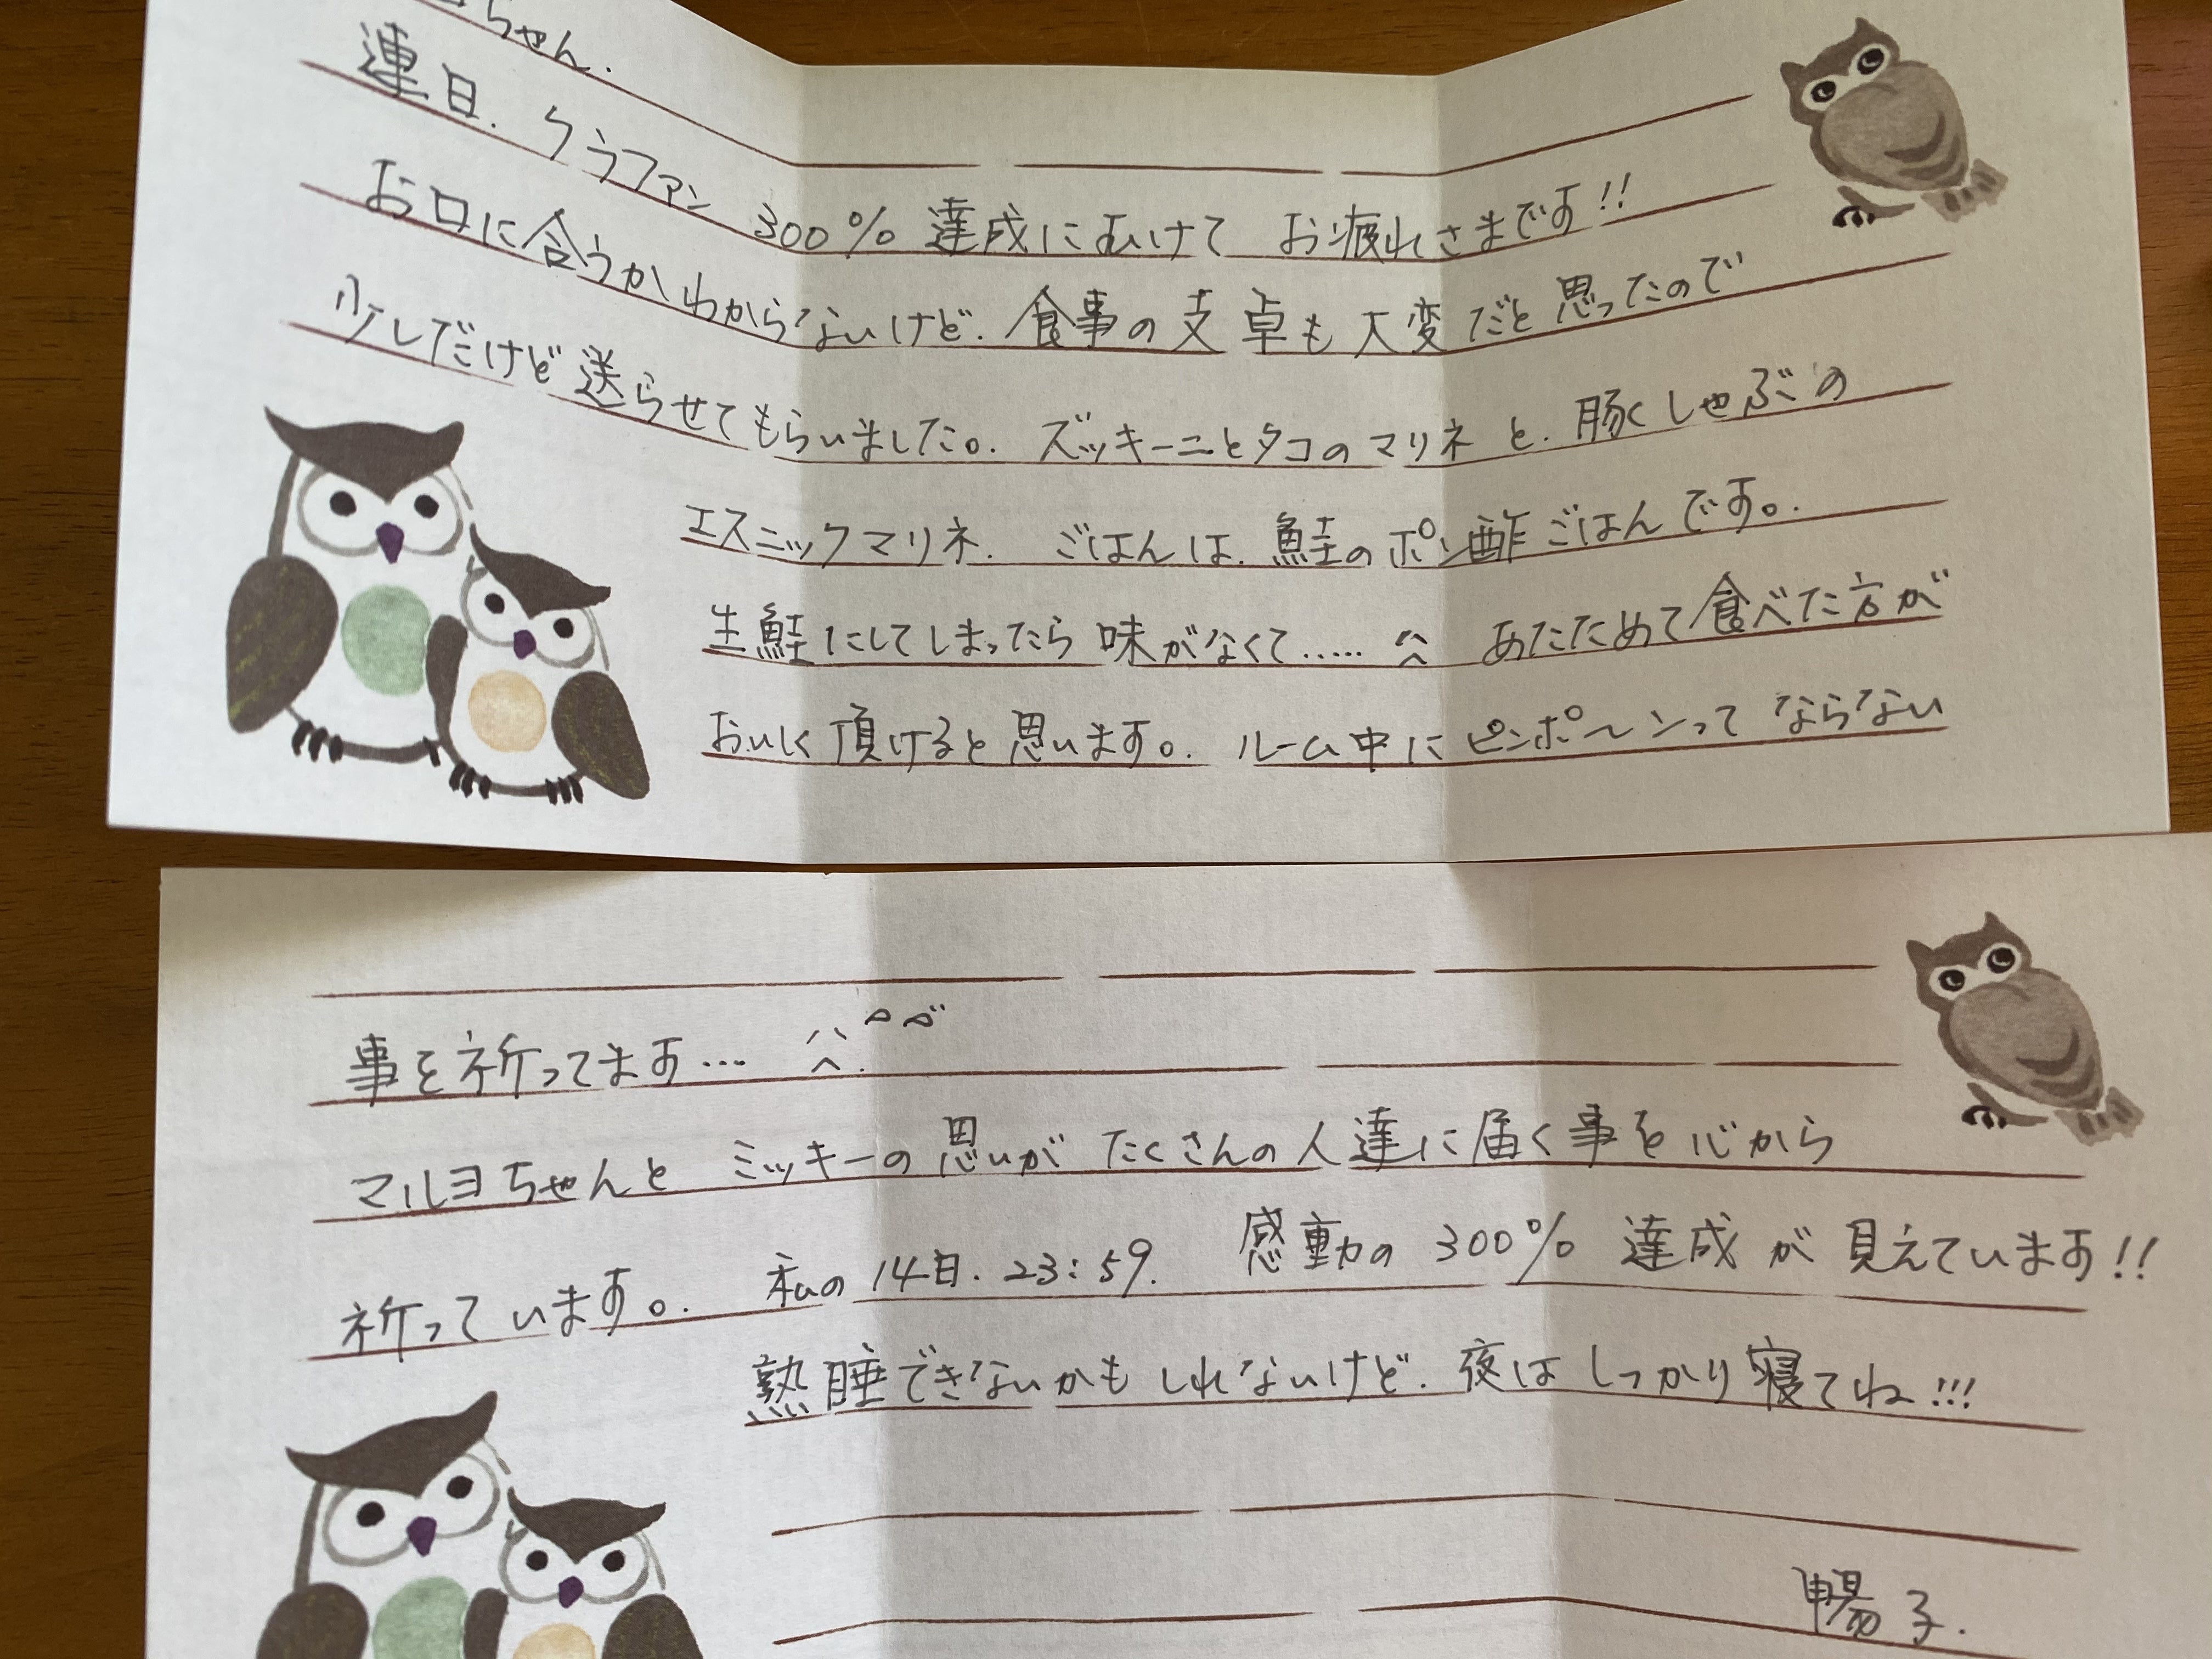 ちゃん.
連日. クラファン 300% 達成にむけて お疲れさまです!!
お口に合うかわからないけど. 食事の支卓も大変だと思ったので
少しだけど送らせてもらいました。. ズッキーニとタコのマリネ と. 豚しゃぶの
エスニックマリネ. ごはんは. 鮭のポン酢ごはんです。.
生鮭にしてしまったら味がなくて..... あたためて食べた方が
おいしく頂けると思います。. ルーム中にピンポ〜ンってならない
事を祈ってます...
マルヨちゃんと ミッキーの思いが たくさんの人達に届く事を心から
祈っています。. 私の 14日. 23:59. 感動の 300% 達成が見えています!!
熟睡できないかもしれないけど. 夜はしっかり寝てね!!!
暢子.